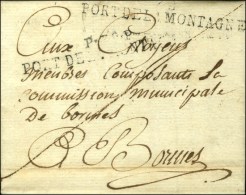 PORT DE LA MONTAGNE
P.
PORT DE
Aux Citoyens
Composants La
Commission municipale
de bormes
A Bormes